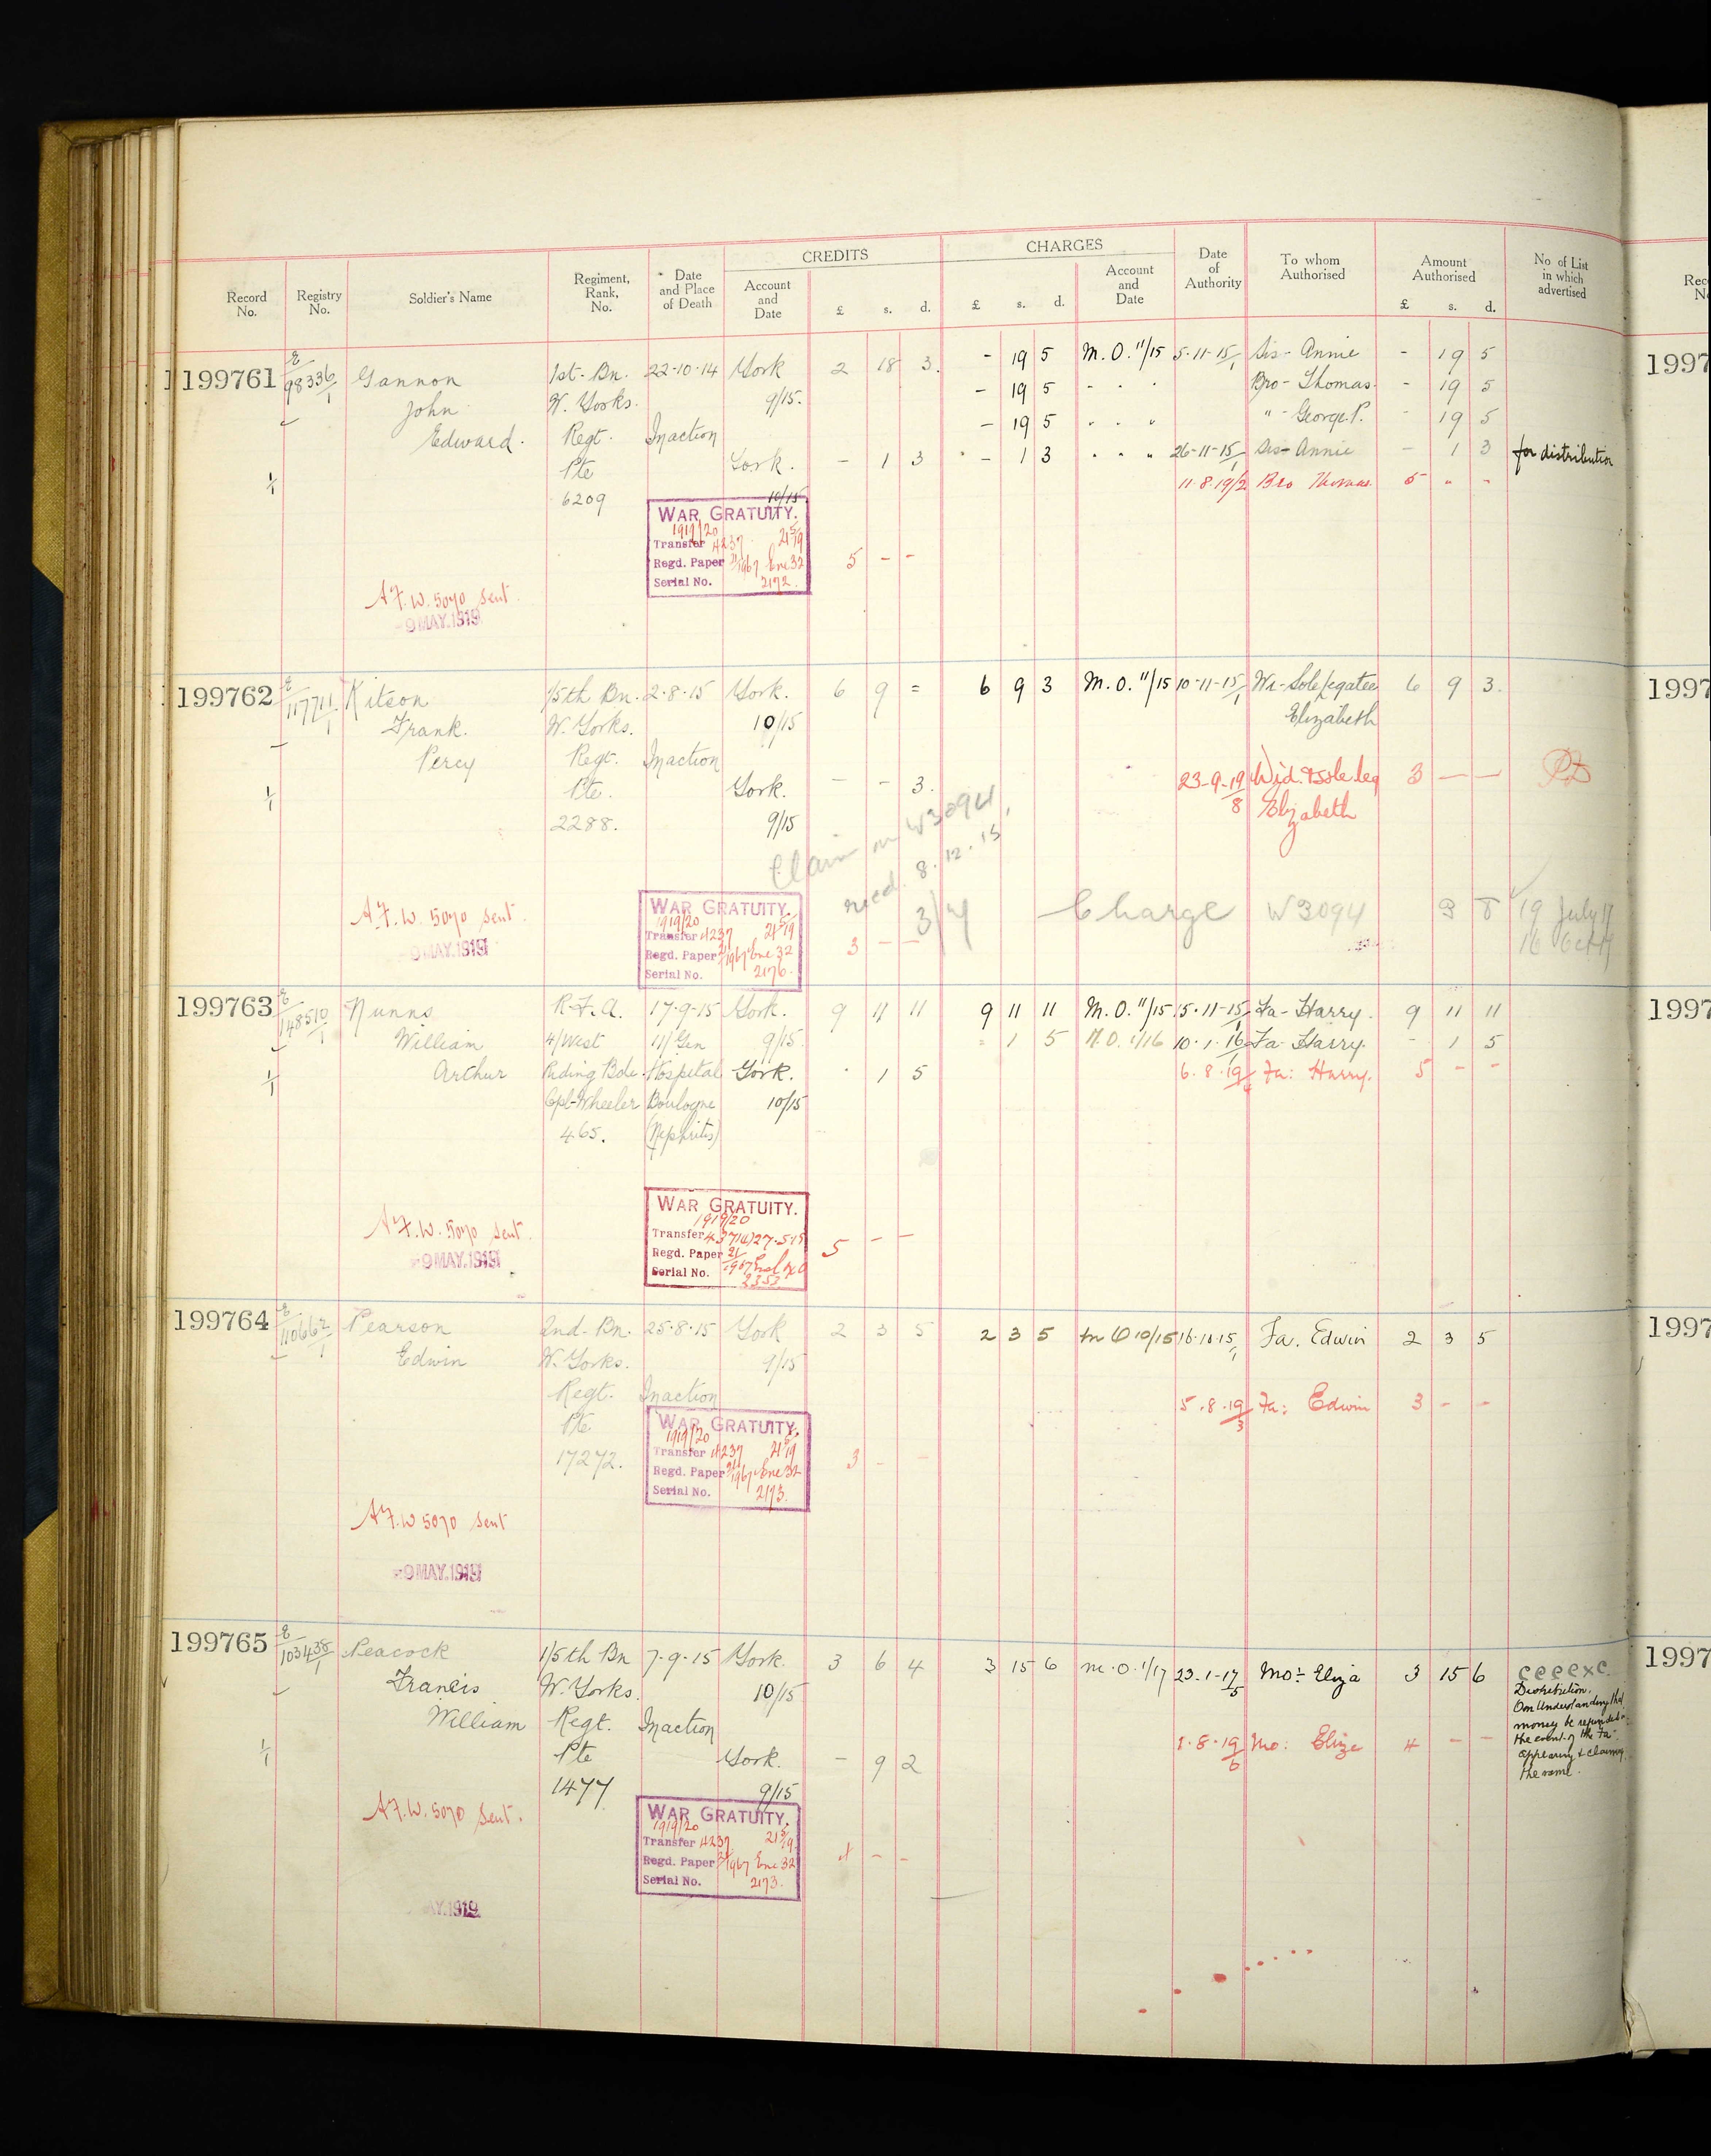 CREDITS CHARGES
Record No. Registry No. Soldier's Name Regiment, Rank, No. Date and Place of Death Account and Date £ s. d. £ s. d. Account and Date Date of Authority To whom Authorised Amount Authorised £ s. d. No of List in which advertised
199761 E/98336/1 Gannon 1st. Bn. 22-10-14 York 2 18 3. - 19 5 M.O. 11/15 5-11-15/1 Sis- Annie - 19 5
John W. Yorks. 9/15. - 19 5 Bro- Thomas. - 19 5
Edward. Regt. In action - 19 5 " - George. P. - 19 5
Pte York. - 1 3 - 1 3 26-11-15/1 Sis- Annie - 1 3 for distribution
1/1 6209 10/15 11.8.19/2 Bro Thomas. 5 " -
WAR GRATUITY.
1919/20
Transfer 4237 21/5/19
Regd. Paper 21/1967 Enc 32 5 - -
Serial No. 2172.
A.F.W. 5070 sent.
9 MAY.1919
199762 E/117711/1 Kitson 1/5th Bn. 2-8-15 York. 6 9 = 6 9 3 M.O. 11/15 10-11-15/1 Wi-Sole legatee 6 9 3.
Frank. W. Yorks. 10/15 Elizabeth
Percy Regt. In action
1/1 Pte. York. - - 3. 23-9-19/8 Wid. & sole leg 3 - -
2288. 9/15 Elizabeth
Claim on W3094
recd. 8.12.15
3/4 Charge W3094 3 8 19 July 17
16 Oct 17
WAR GRATUITY.
1919/20
Transfer 4237 21/5/19
Regd. Paper 21/1967 Enc 32 3 - -
Serial No. 2176.
A.F.W. 5070 sent.
9 MAY.1919
199763 E/148510/1 Nunns R.F.A. 17-9-15 York. 9 11 11 9 11 11 M.O. 11/15 15-11-15/1 Fa- Harry. 9 11 11
William 4/West 11/Gen 9/15. - 1 5 M.O. 1/16 10.1.16/1 Fa- Harry. - 1 5
1/1 Arthur Riding Bde. Hospital York. 1 5 6.8.19 Fa: Harry. 5 - -
Cpl-Wheeler Boulogne 10/15
465. (Nephritis)
WAR GRATUITY.
1919/20
Transfer 27.5.19
Regd. Paper 21/1967 5 - -
Serial No. 2352
A.F.W. 5070 sent.
9 MAY.1919
199764 E/110662/1 Pearson 2nd. Bn. 25-8-15 York 2 3 5 2 3 5 M O 10/15 16.10.15/1 Fa. Edwin 2 3 5
Edwin W. Yorks. 9/15
Regt. In action 5.8.19/3 Fa: Edwin 3 - -
Pte
17272.
WAR GRATUITY.
1919/20
Transfer 4237 21/5/19
Regd. Paper 21/1967 Enc 32 3 - -
Serial No. 2173.
A.F.W 5070 sent
9 MAY.1919
199765 E/103438/1 Peacock 1/5th Bn 7-9-15 York. 3 6 4 3 15 6 M.O. 1/17 23-1-17/5 Mo: Eliza 3 15 6
Francis W. Yorks. 10/15 Distribution.
William Regt. In action On understanding that
1/1 Pte York. - 9 2 1.8.19/6 Mo: Eliza 4 - - money be refunded in
1477 9/15 the event of the Fa:
appearing & claiming
the same.
WAR GRATUITY.
1919/20
Transfer 4237 21/5/19.
Regd. Paper 21/1967 Enc 32 4 - -
Serial No. 2173.
A.F.W. 5070 sent.
AY.1919
Rec
N
1997
1997
1997
1997
1997